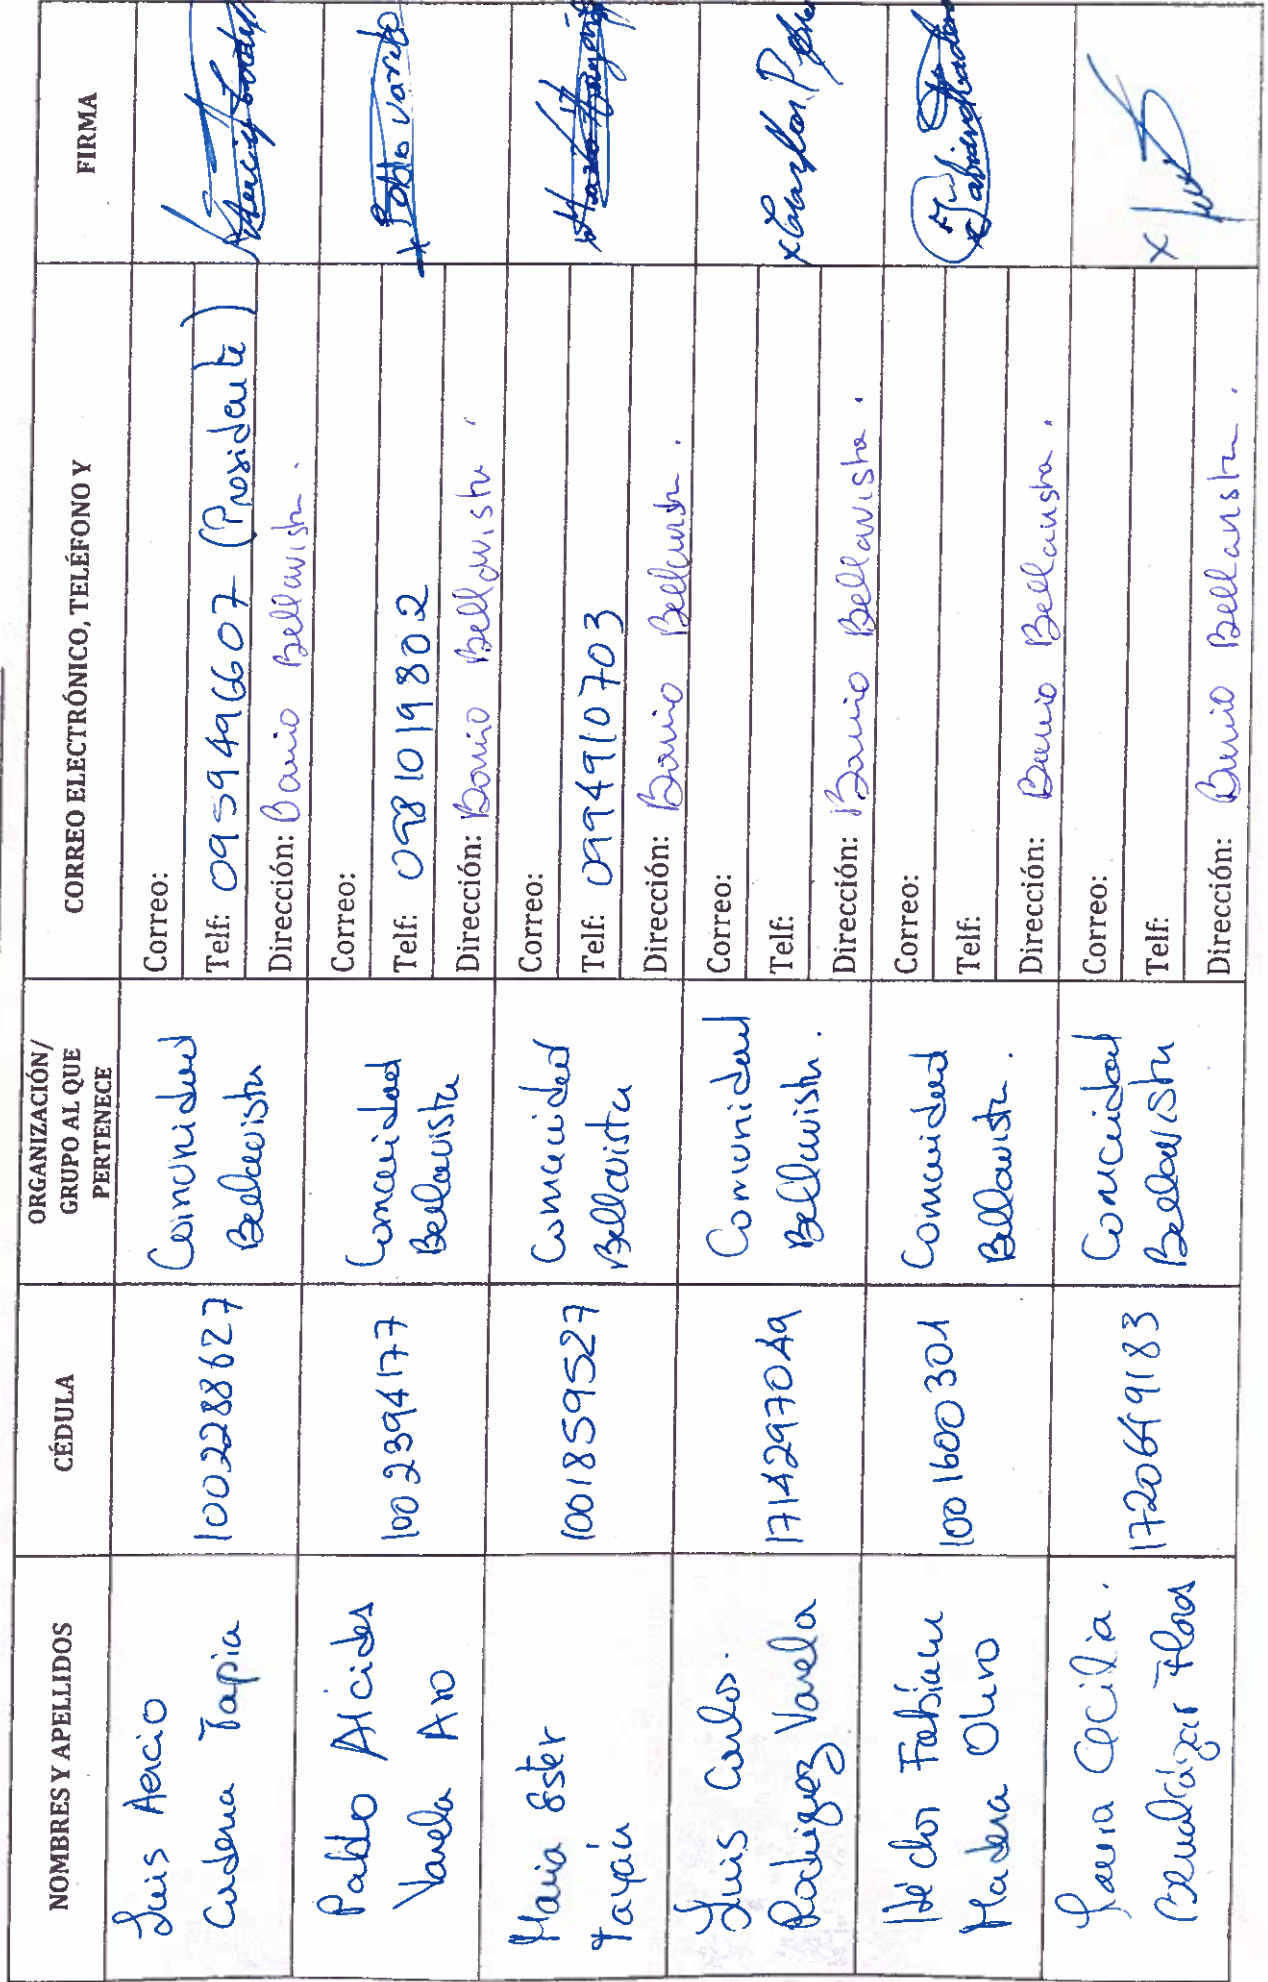 NOMBRES Y APELLIDOS
CÉDULA
ORGANIZACIÓN/
GRUPO AL QUE
PERTENECE
CORREO ELECTRÓNICO, TELÉFONO Y
FIRMA
Luis Aercio
Cadena Tapia
1002288627
Comunidad
Bellavista
Correo:
Telf: 0959496607 (Presidente)
Dirección: Barrio Bellavista.
Pablo Alcides
Varela Aro
1002394177
Comunidad
Bellavista
Correo:
Telf: 0981019802
Dirección: Barrio Bellavista.
Pablo Varela
Maria Ester
Tayán
1001859527
Comunidad
Bellavista
Correo:
Telf: 0994910703
Dirección: Barrio Bellavista.
Luis Carlos.
Rodriguez Varela
1714297049
Comunidad
Bellavista.
Correo:
Telf:
Dirección: Barrio Bellavista.
Héctor Fabián
Madera
1001600301
Comunidad
Bellavista.
Correo:
Telf:
Dirección: Barrio Bellavista.
Cecilia.
Flores
Comunidad
Bellavista
Correo:
Telf:
Dirección: Barrio Bellavista.
X